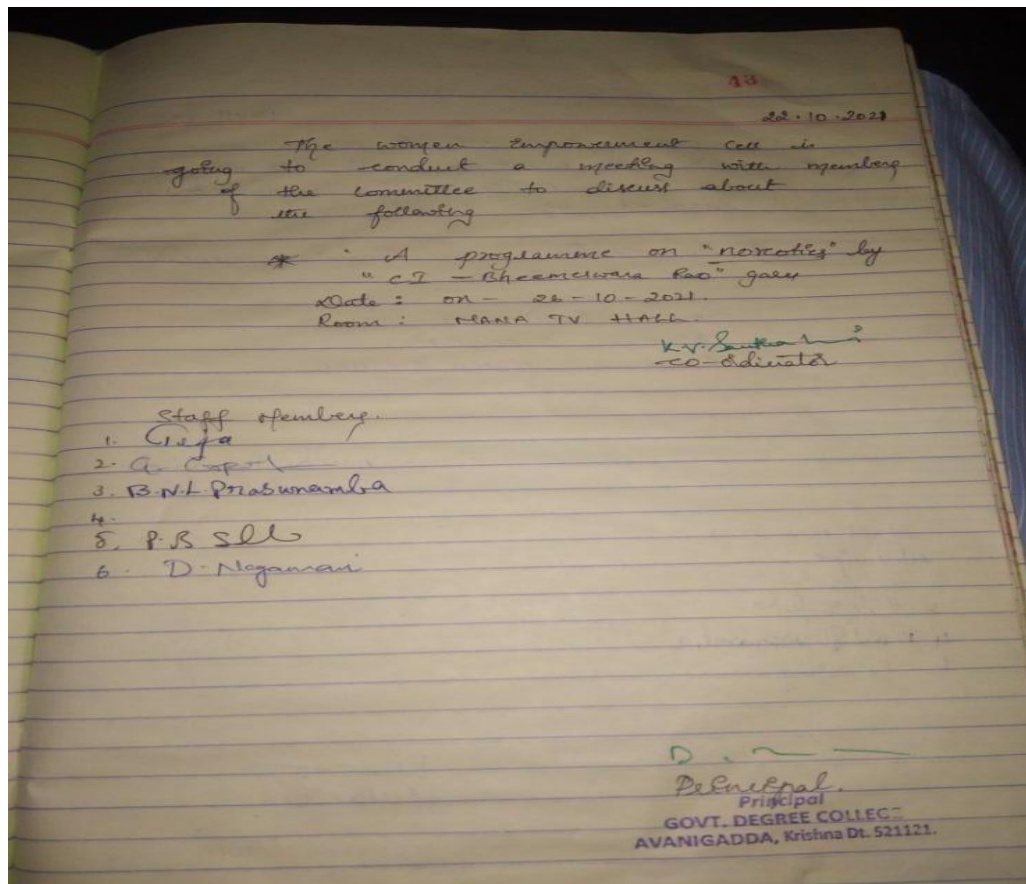 43
22.10.2021
The women Empowerment cell is
going to conduct a meeting with members
of the committee to discuss about
the following
* A programme on "norcotics" by
"CI - Bheemeswara Rao" garu
Date : on - 26-10-2021.
Room : MANA TV HALL.
K.V.
co-ordinator
Staff Members.
1. Teja
2. G.
3. B.N.L. Prasunamba
4.
5. P.B
6. D. Nagamani
D.
Principal.
Principal
GOVT. DEGREE COLLEGE
AVANIGADDA, Krishna Dt. 521121.